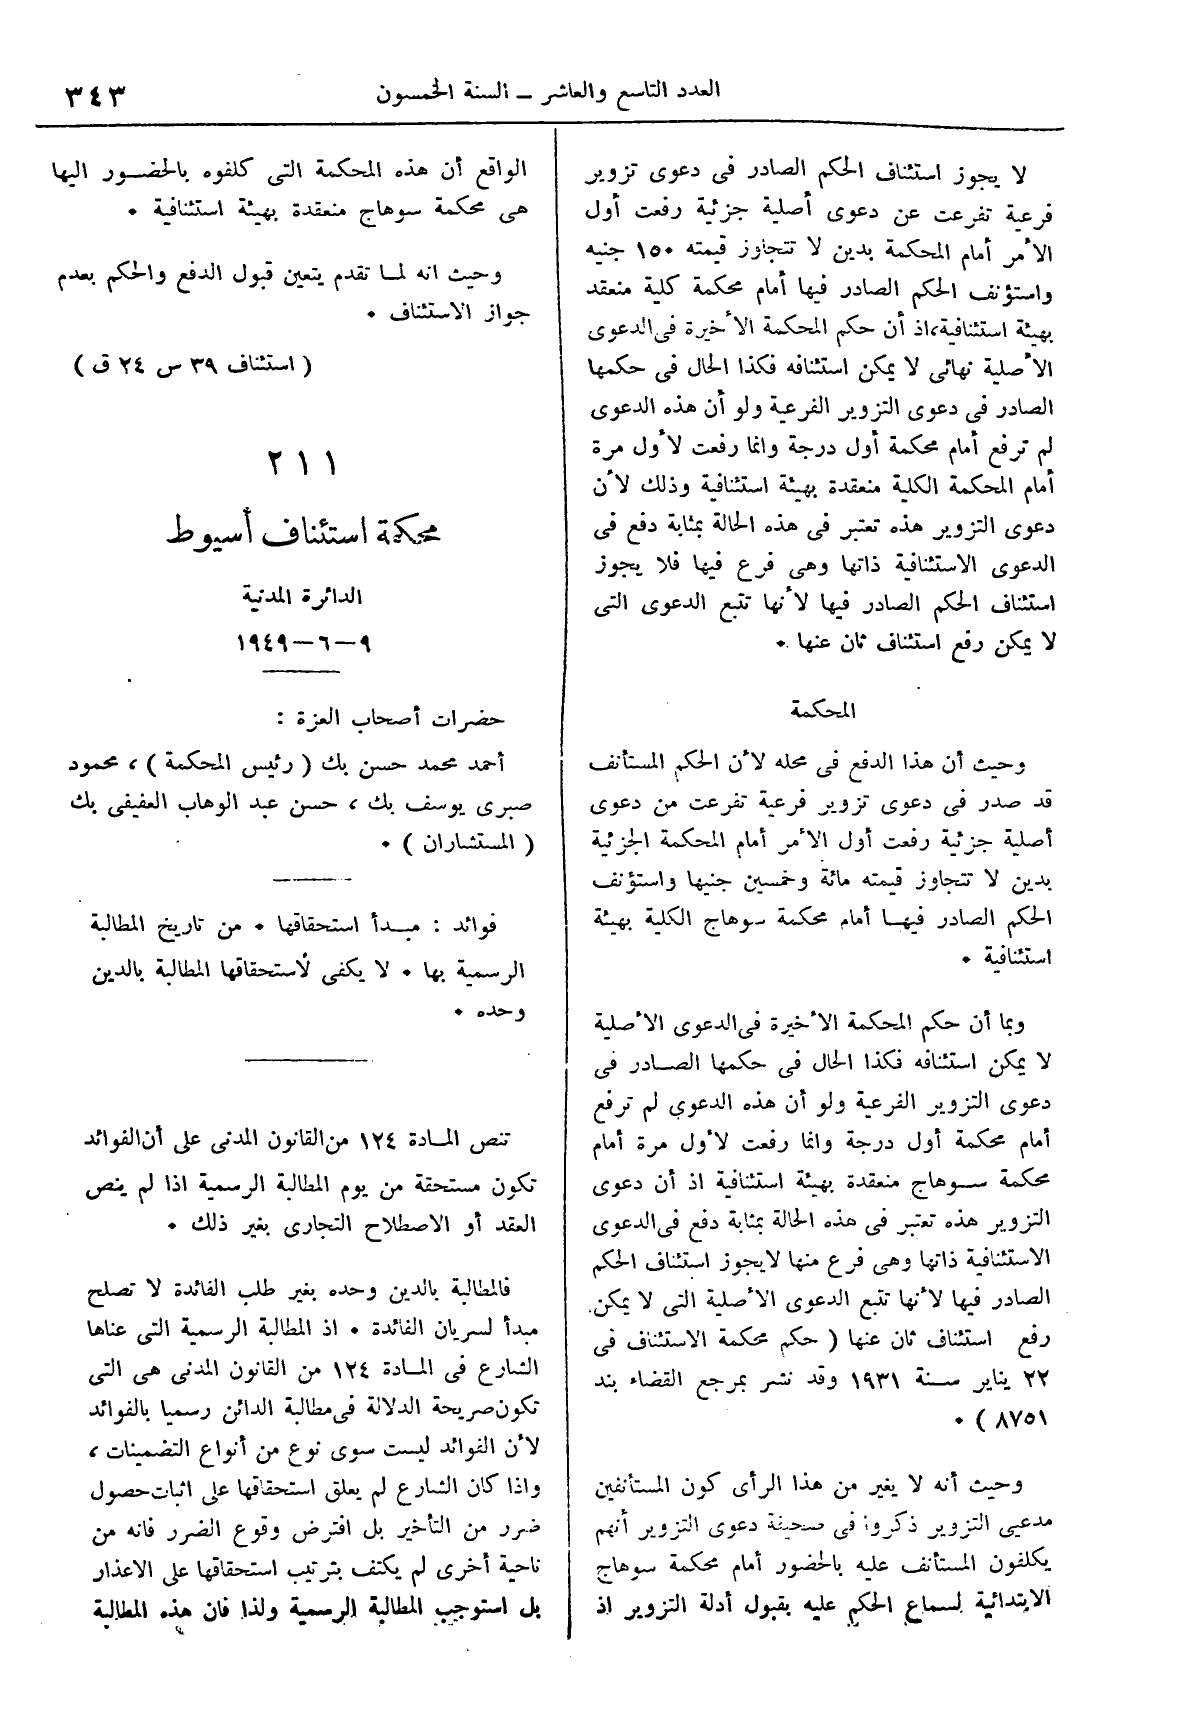 العدد التاسع والعاشر – السنة الخمسون
٣٤٣
لا يجوز استئناف الحكم الصادر فى دعوى تزوير
فرعية تفرعت عن دعوى أصلية جزئية رفعت أول
الأمر أمام المحكمة بدين لا تتجاوز قيمته ١٥٠ جنيه
واستؤنف الحكم الصادر فيها أمام محكمة كلية منعقد
بهيئة استئنافية،اذ أن حكم المحكمة الأخيرة فى الدعوى
الأصلية نهائى لا يمكن استئنافه فكذا الحال فى حكمها
الصادر فى دعوى التزوير الفرعية ولو أن هذه الدعوى
لم ترفع أمام محكمة أول درجة وانما رفعت لأول مرة
أمام المحكمة الكلية منعقدة بهيئة استئنافية وذلك لأن
دعوى التزوير هذه تعتبر فى هذه الحالة بمثابة دفع فى
الدعوى الاستئنافية ذاتها وهى فرع فيها فلا يجوز
استئناف الحكم الصادر فيها لأنها تتبع الدعوى التى
لا يمكن رفع استئناف ثان عنها .
المحكمة
وحيث أن هذا الدفع فى محله لأن الحكم المستأنف
قد صدر فى دعوى تزوير فرعية تفرعت من دعوى
أصلية جزئية رفعت أول الأمر أمام المحكمة الجزئية
بدين لا تتجاوز قيمته مائة وخمسين جنيها واستؤنف
الحكم الصادر فيها أمام محكمة سوهاج الكلية بهيئة
استئنافية .
وبما أن حكم المحكمة الأخيرة فى الدعوى الأصلية
لا يمكن استئنافه فكذا الحال فى حكمها الصادر فى
دعوى التزوير الفرعية ولو أن هذه الدعوى لم ترفع
أمام محكمة أول درجة وانما رفعت لأول مرة أمام
محكمة سوهاج منعقدة بهيئة استئنافية اذ أن دعوى
التزوير هذه تعتبر فى هذه الحالة بمثابة دفع فى الدعوى
الاستئنافية ذاتها وهى فرع منها لايجوز استئناف الحكم
الصادر فيها لأنها تتبع الدعوى الأصلية التى لا يمكن
رفع استئناف ثان عنها ( حكم محكمة الاستئناف فى
٢٢ يناير سنة ١٩٣١ وقد نشر بمرجع القضاء بند
٨٧٥١ ) .
وحيث أنه لا يغير من هذا الرأى كون المستأنفين
مدعيى التزوير ذكروا فى صحيفة دعوى التزوير أنهم
يكلفون المستأنف عليه بالحضور أمام محكمة سوهاج
الابتدائية لسماع الحكم عليه بقبول أدلة التزوير اذ
الواقع أن هذه المحكمة التى كلفوه بالحضور اليها
هى محكمة سوهاج منعقدة بهيئة استئنافية .
وحيث انه لما تقدم يتعين قبول الدفع والحكم بعدم
جواز الاستئناف .
( استئناف ٣٩ س ٢٤ ق )
٢١١
محكمة استئناف أسيوط
الدائرة المدنية
٩ – ٦ – ١٩٤٩
حضرات أصحاب العزة :
أحمد محمد حسن بك ( رئيس المحكمة ) ، محمود
صبرى يوسف بك ، حسن عبد الوهاب العفيفى بك
( المستشاران ) .
فوائد : مبدأ استحقاقها . من تاريخ المطالبة
الرسمية بها . لا يكفى لأستحقاقها المطالبة بالدين
وحده .
تنص المادة ١٢٤ من القانون المدنى على أن الفوائد
تكون مستحقة من يوم المطالبة الرسمية اذا لم ينص
العقد أو الاصطلاح التجارى بغير ذلك .
فالمطالبة بالدين وحده بغير طلب الفائدة لا تصلح
مبدأ لسريان الفائدة . اذ المطالبة الرسمية التى عناها
الشارع فى المادة ١٢٤ من القانون المدنى هى التى
تكون صريحة الدلالة فى مطالبة الدائن رسميا بالفوائد
لأن الفوائد ليست سوى نوع من أنواع التضمينات ،
واذا كان الشارع لم يعلق استحقاقها على اثبات حصول
ضرر من التأخير بل افترض وقوع الضرر فانه من
ناحية أخرى لم يكتف بترتيب استحقاقها على الاعذار
بل استوجب المطالبة الرسمية ولذا فان هذه المطالبة